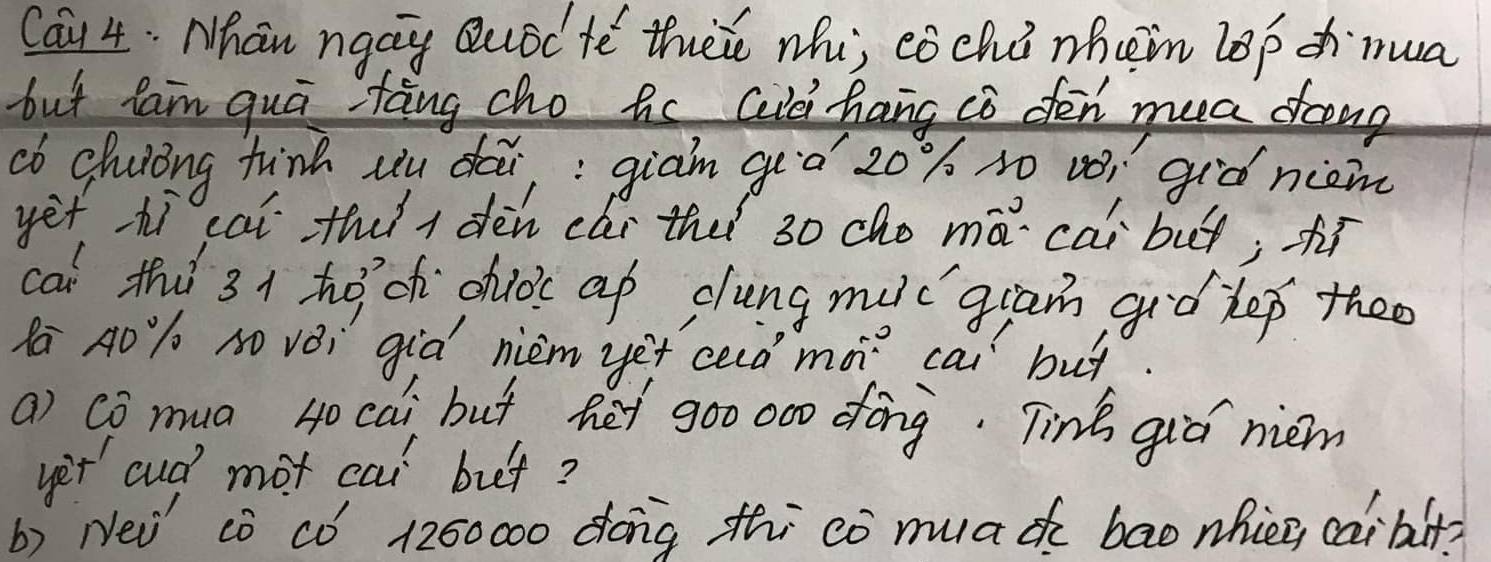 Câu 4: Nhân ngày Quốc tế thiếu nhi, cô chủ nhiệm lớp đi mua
bút làm quà tặng cho hs Cửa hàng cô đến mua đang
có chương trình ưu đãi : giảm giá 20% so với giá niêm
yết từ cái thứ 1 đến cái thứ 30 cho mỗi cái bút, từ
cái thứ 31 trở đi được áp dụng mức giảm giá tiếp theo
là 40% so với giá niêm yết của mỗi cái bút.
a) Cô mua 40 cái bút hết 900 000 đồng. Tính giá niêm
yết của một cái bút?
b) Nếu cô có 1260000 đồng thì cô mua đc bao nhiêu cái bút?